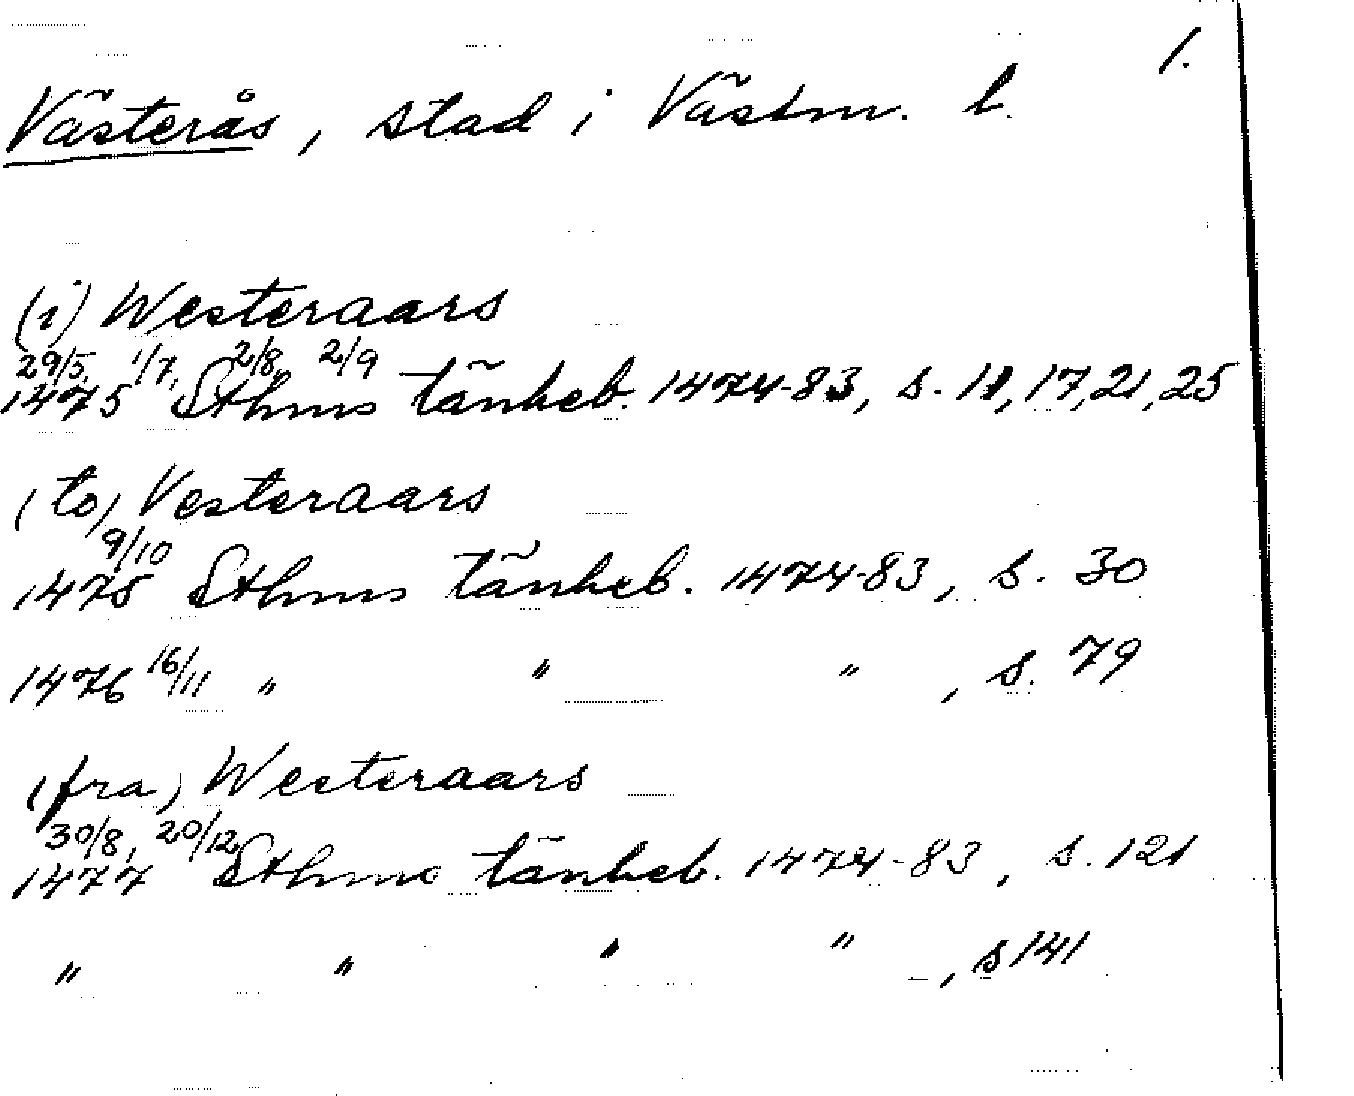 1.
Västerås, stad i Västm. l.
(i) Westeraars
29/5, 1/7, 2/8, 2/9
1475 Sthms tänkeb. 1474-83, s. 11, 17, 21, 25
(to) Vesteraars
9/10
1475 Sthms tänkeb. 1474-83, s. 30
1476 16/11 " " " , s. 79
(fra) Westeraars
30/8, 20/12
1477 Sthms tänkeb. 1474-83, s. 121
" " " " , s 141